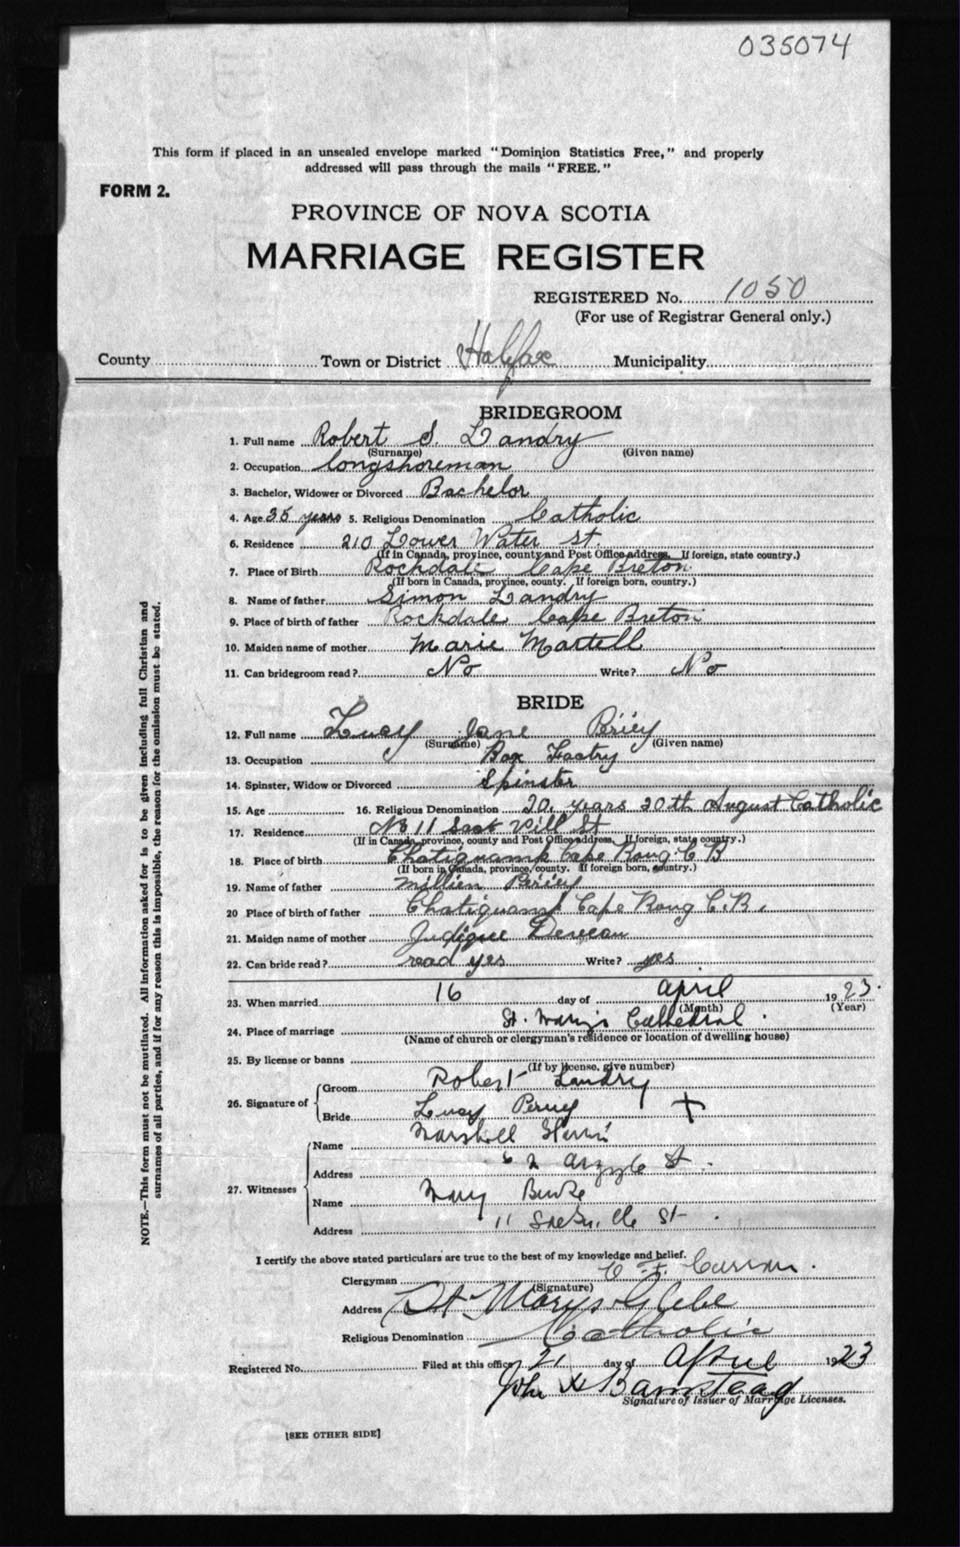 035074
This form if placed in an unsealed envelope marked "Dominion Statistics Free," and properly
addressed will pass through the mails "FREE."
FORM 2.
PROVINCE OF NOVA SCOTIA
MARRIAGE REGISTER
REGISTERED No. 1050
(For use of Registrar General only.)
County Town or District Halifax Municipality
BRIDEGROOM
1. Full name Robert S. Landry
(Surname) (Given name)
2. Occupation longshoreman
3. Bachelor, Widower or Divorced Bachelor
4. Age 35 years 5. Religious Denomination Catholic
6. Residence 210 Lower Water St.
(If in Canada, province, county and Post Office address. If foreign, state country.)
7. Place of Birth Rockdale Cape Breton
(If born in Canada, province, county. If foreign born, country.)
8. Name of father Simon Landry
9. Place of birth of father Rockdale Cape Breton
10. Maiden name of mother Marie Martell
11. Can bridegroom read? No Write? No
BRIDE
12. Full name Lucy Jane
(Surname) (Given name)
13. Occupation Box Factry
14. Spinster, Widow or Divorced Spinster
15. Age 16. Religious Denomination 20 years 20th August Catholic
17. Residence No 11 Sack vill St
(If in Canada, province, county and Post Office address. If foreign, state country.)
18. Place of birth Chatiquamp Cape Roug C B
(If born in Canada, province, county. If foreign born, country.)
19. Name of father Millien
20 Place of birth of father Chatiquamp Cape Roug C.B.
21. Maiden name of mother Judique Deveau
22. Can bride read? read yes Write? yes
23. When married 16 day of April 1923.
(Month) (Year)
24. Place of marriage St. Mary's Cathedral.
(Name of church or clergyman's residence or location of dwelling house)
25. By license or banns
(If by license, give number)
26. Signature of Groom Robert Landry
Bride Lucy +
27. Witnesses Name Marshall
Address Argyle St.
Name Mary Burke
Address 11 Sackville St.
I certify the above stated particulars are true to the best of my knowledge and belief.
Clergyman C. F. Curran.
(Signature)
Address St Marys Glebe
Religious Denomination Catholic
Registered No. Filed at this office 21 day of April 1923
John Bamstead
Signature of Issuer of Marriage Licenses.
[SEE OTHER SIDE]
NOTE.—This form must not be mutilated. All information asked for is to be given including full Christian and
surnames of all parties, and if for any reason this is impossible, the reason for the omission must be stated.